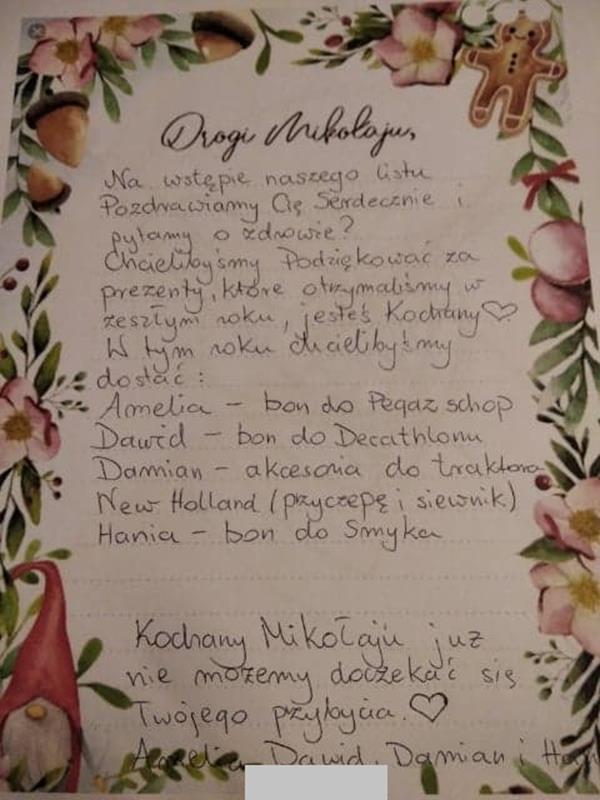 Drogi Mikołaju,
Na wstępie naszego listu
Pozdrawiamy Cię Serdecznie i
pytamy o zdrowie?
Chcielibyśmy Podziękować za
prezenty, które otrzymaliśmy w
zeszłym roku, jesteś Kochany♡
W tym roku chcielibyśmy
dostać:
Amelia - bon do Pegaz schop
Dawid - bon do Decathlonu
Damian - akcesoria do traktora
New Holland (przyczepę i siewnik)
Hania - bon do Smyka
Kochany Mikołaju już
nie możemy doczekać się
Twojego przybycia.♡
Amelia, Dawid, Damian i Han